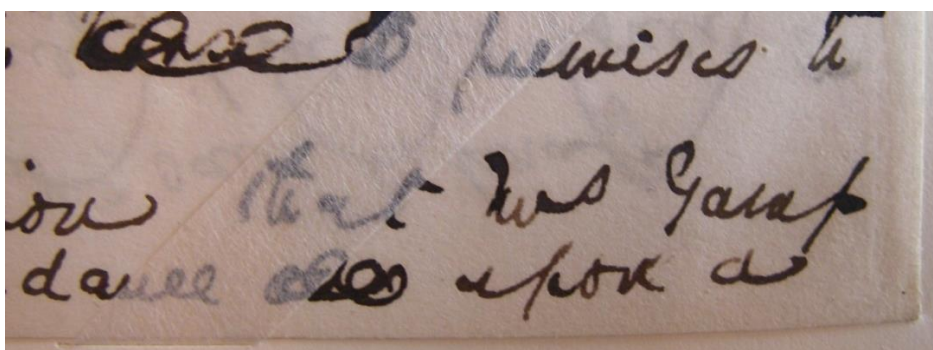 premises to
ion that Mrs Gamp
dance upon a